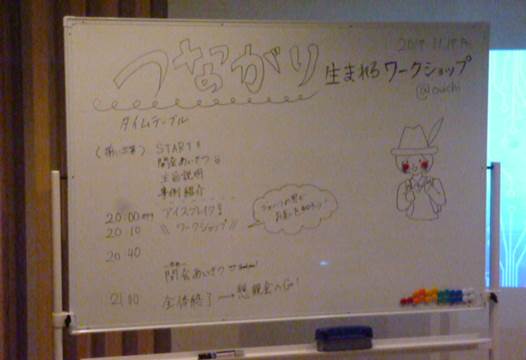 つながり 生まれるワークショップ
@ouchi
タイムテーブル
START!!
開会あいさつ
主旨説明
事例紹介
20:00 アイスブレイク!
20:10 \\ ワークショップ //
20:40
閉会あいさつ
全体終了 → 懇親会へGo!